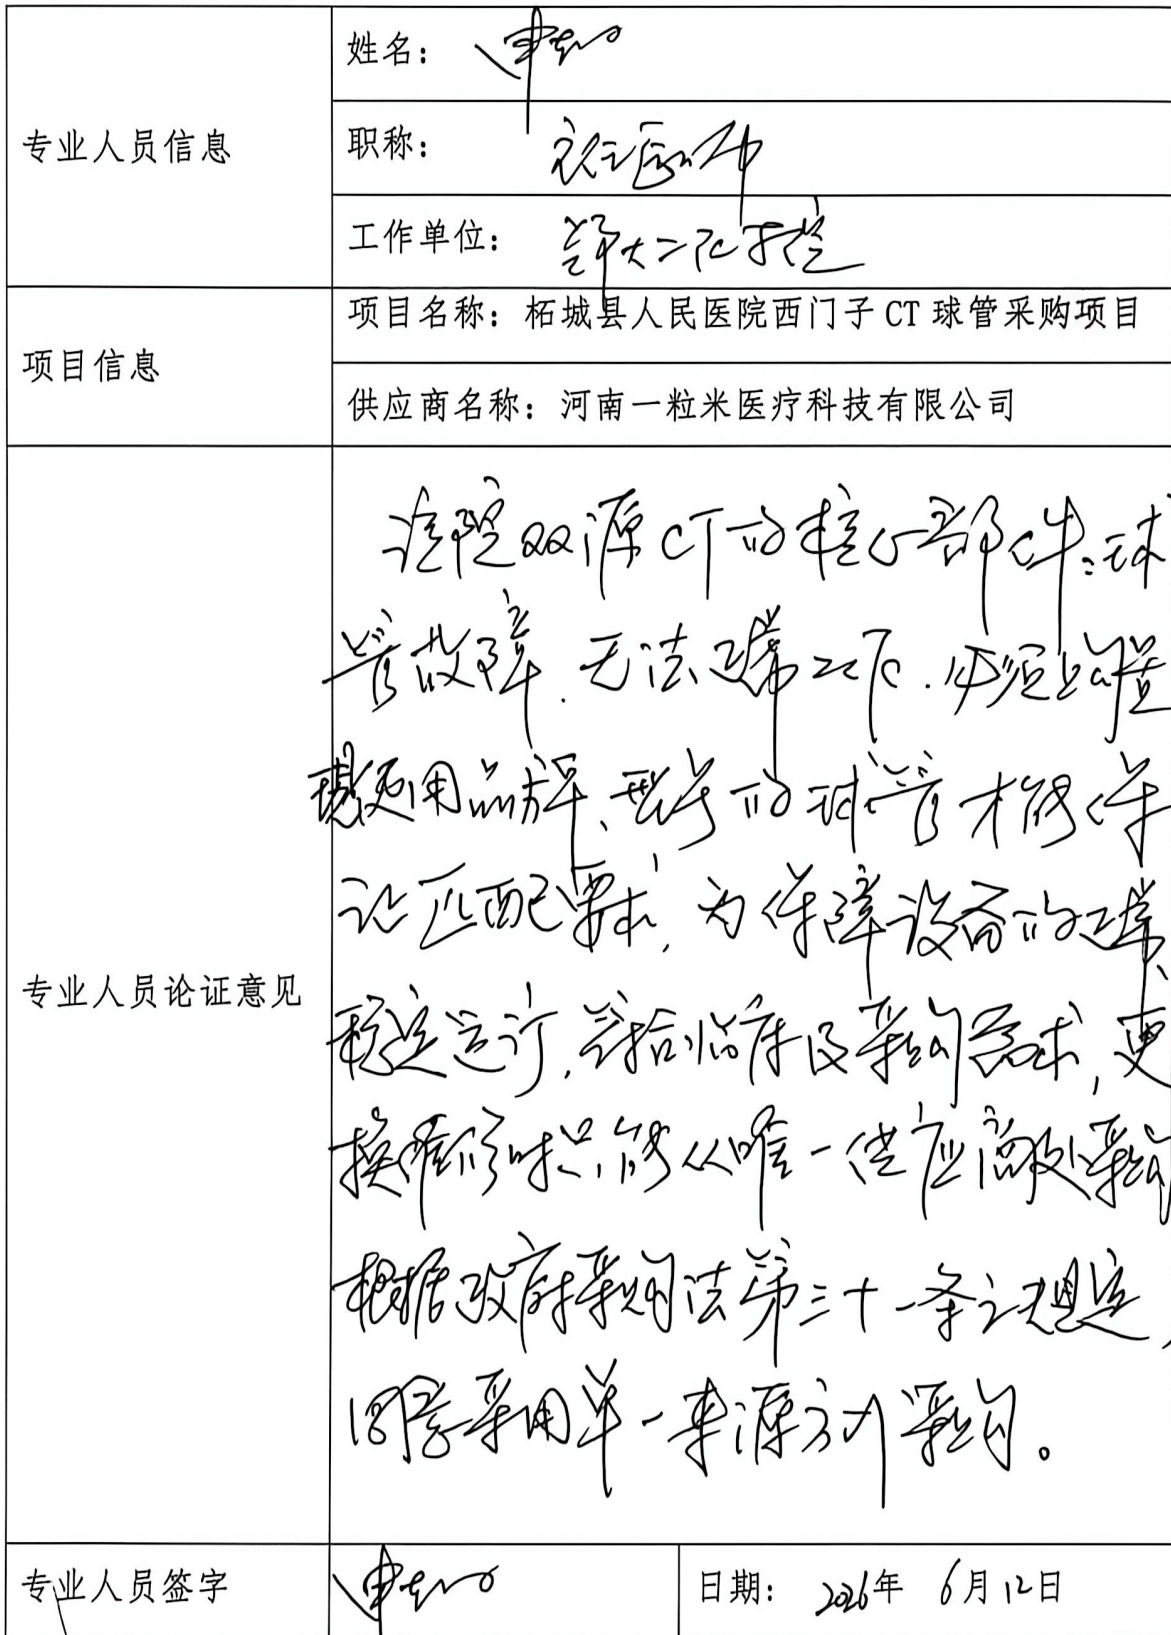 专业人员信息
姓名：
职称：主任医师
工作单位：郑大二附院
项目信息
项目名称：柘城县人民医院西门子 CT 球管采购项目
供应商名称：河南一粒米医疗科技有限公司
专业人员论证意见
该院双源CT的核心部件：球
管故障，无法正常工作，必须购置
现使用品牌、型号的球管才能保
证匹配要求，为保障设备的正常、
稳定运行，结合临床及采购需求，更
换维修时只能从唯一供应商处采购
根据政府采购法第三十一条之规定，
同意采用单一来源方式采购。
专业人员签字
日期：2026年 6月12日